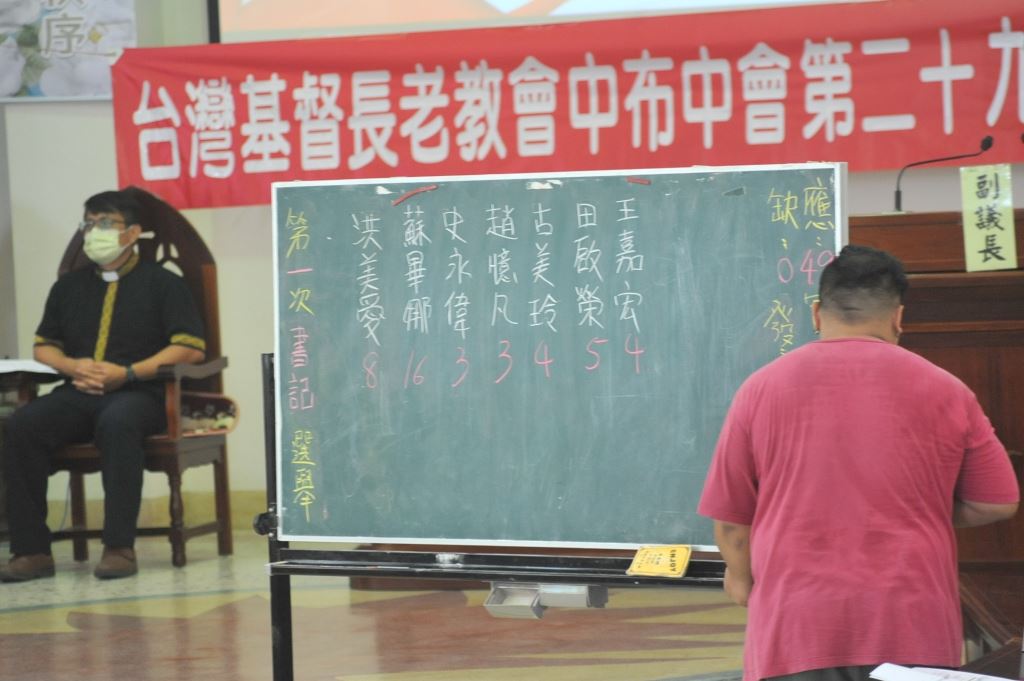 秩序
台灣基督長老教會中布中會第二十九
副議長
應：49
缺：0
發
王嘉宏 4
田啟榮 5
古美玲 4
趙憶凡 3
史永偉 3
蘇畢娜 16
洪美愛 8
第一次書記選舉
ENJOY